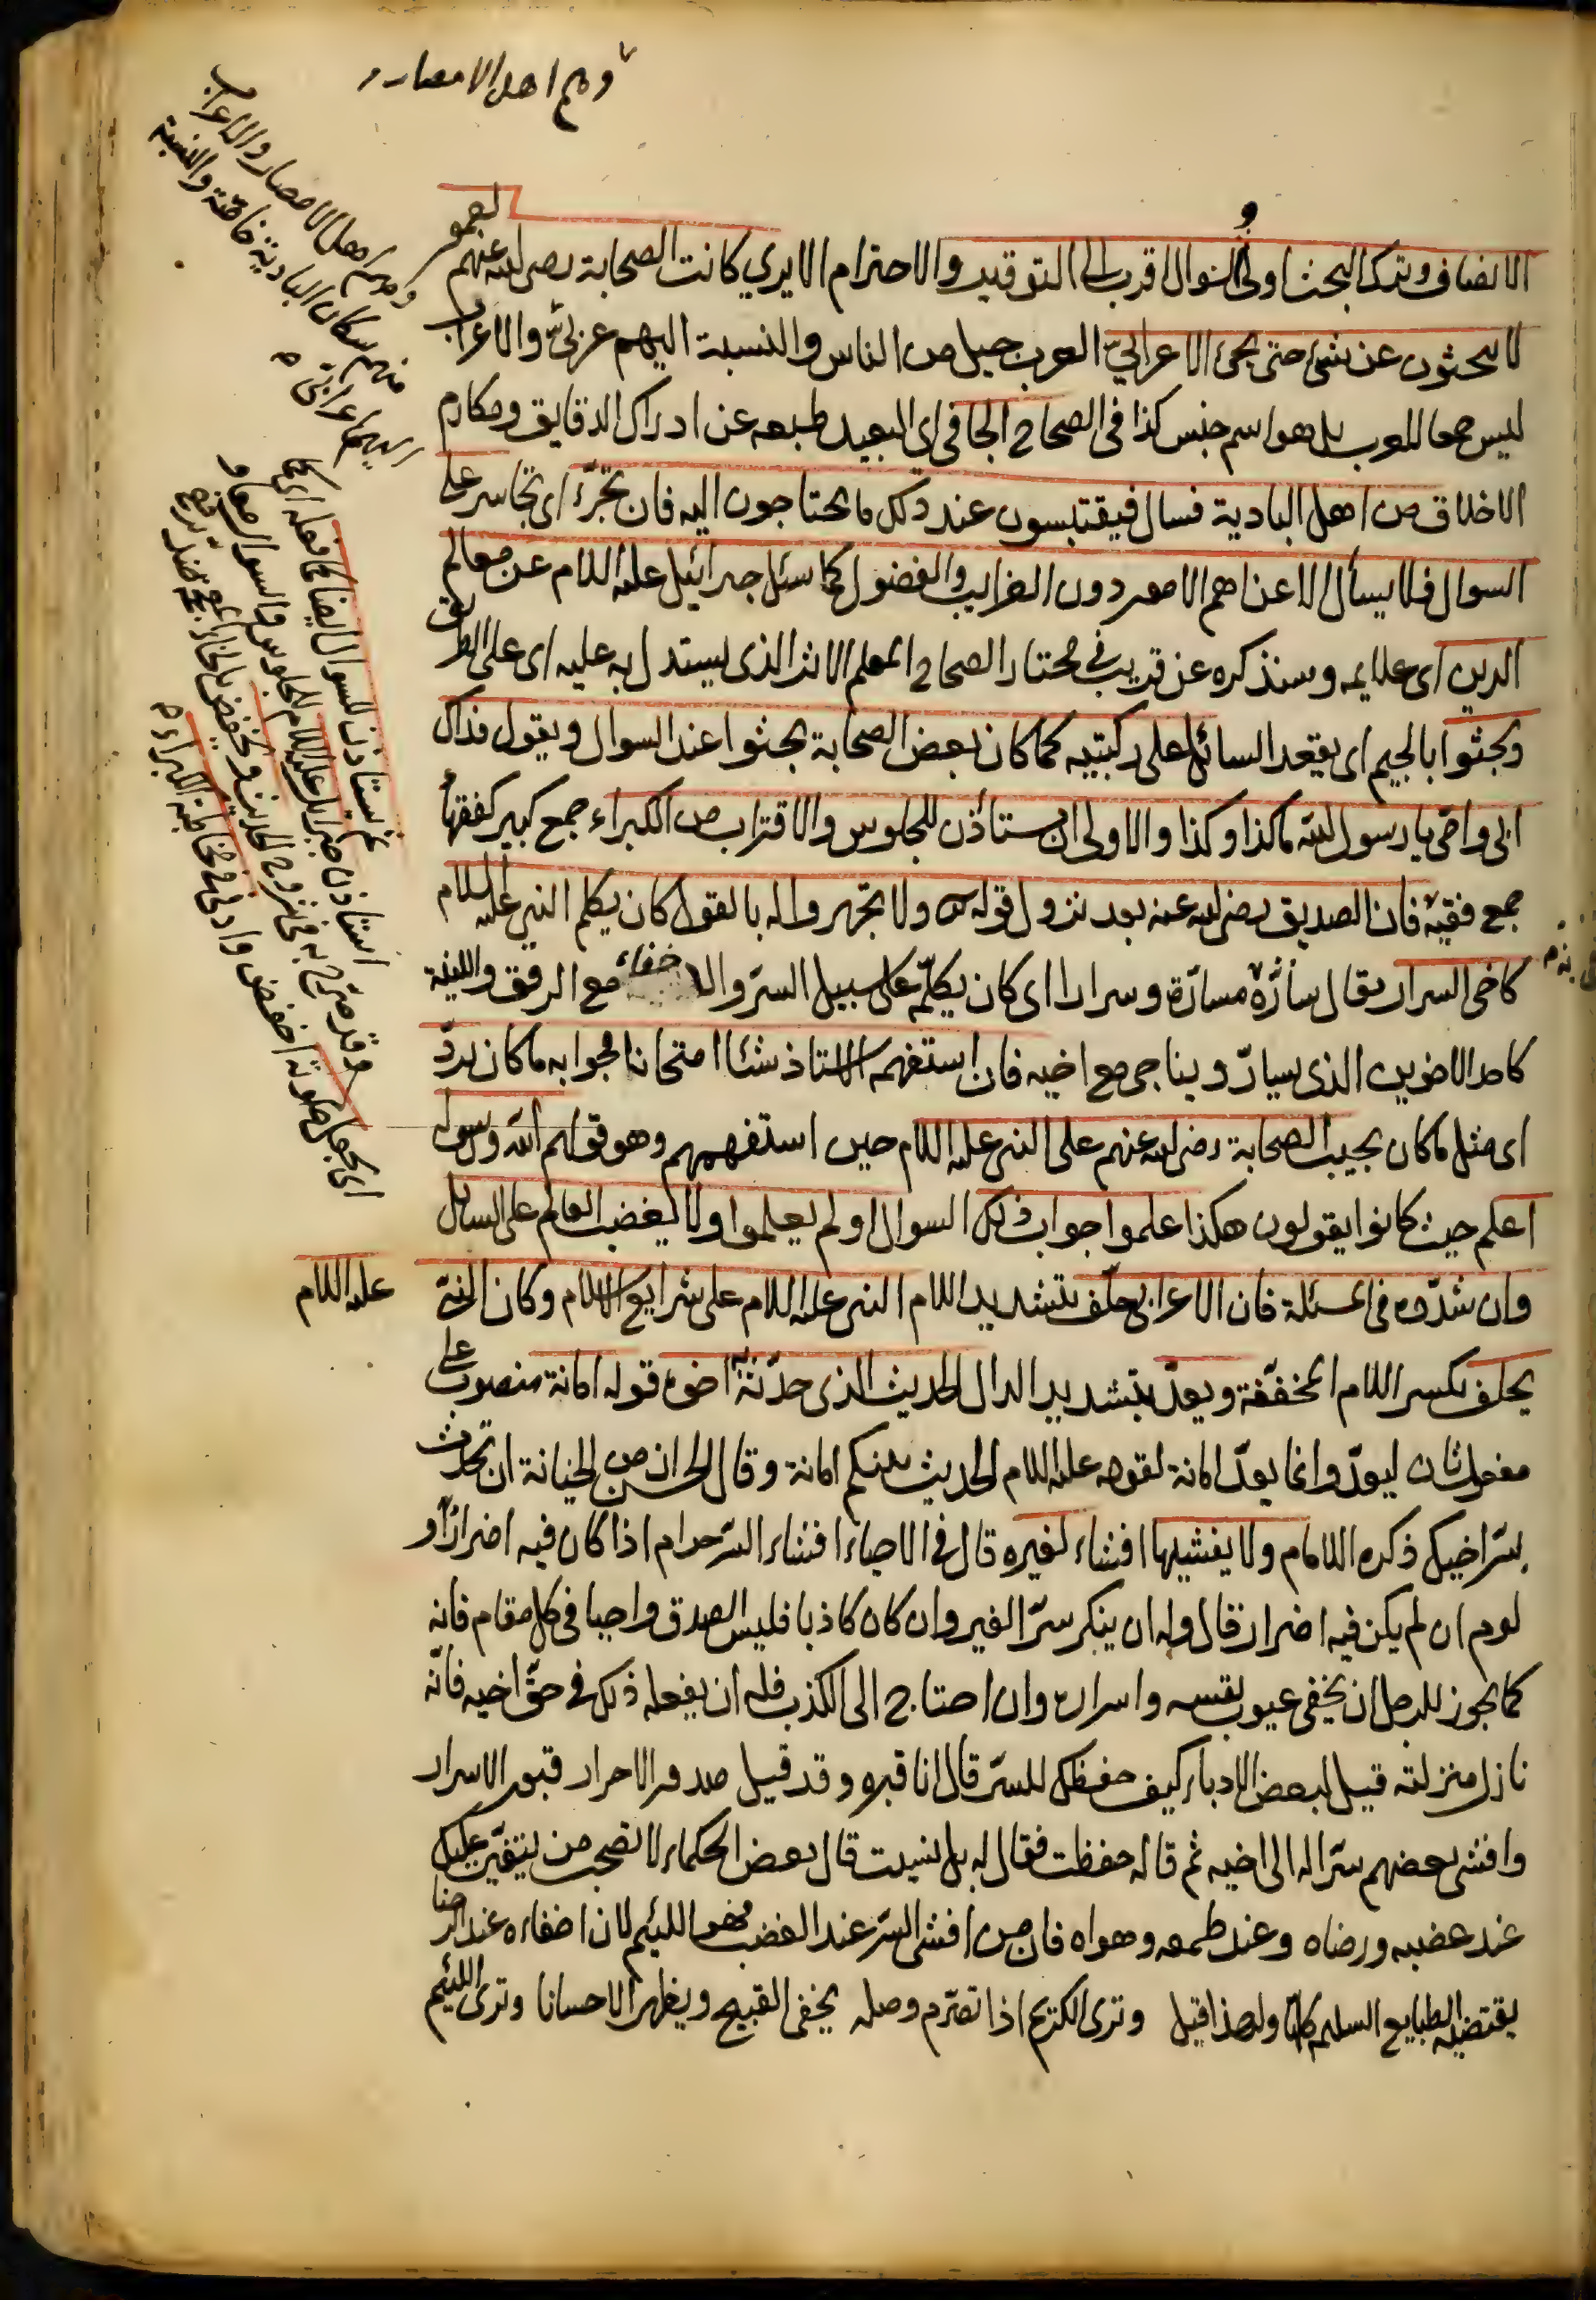 وهم اهل الامصار
الانصاف وترك البحث اولى والسؤال اقرب الى التوقير والاحترام الا يرى كانت الصحابة رضى الله عنهم
لا يبحثون عن شئ حتى يجئ الاعرابي العرب جيل من الناس والنسبة اليهم عربيّ والاعراب
ليس جمعا للعرب بل هو اسم جنس كذا فى الصحاح الجافى اى البعيد طبعه عن ادراك الدقايق ومكارم
الاخلاق من اهل البادية فسال فيقتبسون عند ذلك ما يحتاجون اليه فان تجرّء اى تجاسر على
السوال فلا يسأل الا عن اهم الامور دون الغرايب والفضول كما سئل جبرائيل عليه السلام عن معالم
الدين اى علايمه وسنذكره عن قريب فى مختار الصحاح المعلم الاثر الذى يستدل به عليه اى على الطريق
ويجثوا بالجيم اى يقعد السائل على ركبتيه كما كان بعض الصحابة يجثوا عند السوال ويقول فداك
ابى وامّى يا رسول الله ما كذا وكذا والاولى ان يستأذن للجلوس والاقتراب من الكبراء جمع كبير كفقهاء
جمع فقيه فان الصديق رضى الله عنه بعد نزول قوله ولا تجهروا له بالقول كان يكلم النبى عليه السلام
كاخى السرار يقال سارّه مسارّة وسرارا اى كان يكلّمه على سبيل السرّ والاخفاء مع الرفق واللينة
كاحد الاخوين الذى يسارّ ويناجى مع اخيه فان استفهمه الاستاذ شئا امتحانا فجوابه ما كان يردّ
اى مثل ما كان يجيب الصحابة رضى الله عنهم على النبى عليه السلام حين استفهمهم وهو قولهم الله ورسوله
اعلم حيث كانوا يقولون هكذا علموا جواب ذلك السوال او لم يعلموا ولا يغضب العالم على السائل
وان شدّد فى المسئلة فان الاعرابى حلّف بتشديد اللام النبى عليه السلام على شرايع الاسلام وكان النبىّ
عليه السلام
يحلف بكسر اللام المخففة ويعدّ بتشديد الدال الحديث الذى حدّثه اخوه قوله امانة منصوب على
مفعول ثان ليعدّ وانما يعدّ امانة لقوله عليه السلام الحديث بينكم امانة وقال الحسن ان من الخيانة ان تحدث
بسرّ اخيك ذكره الامام ولا يفشيها افشاء لغيره قال فى الاحياء افشاء السّر حرام اذا كان فيه اضرار او
لوم ان لم يكن فيه اضرار قال وله ان ينكر سرّ الغير وان كان كاذبا فليس الصدق واجبا فى كل مقام فانه
كما يجوز للرجل ان يخفى عيوب نفسه واسراره وان احتاج الى الكذب فله ان يفعله ذلك فى حقّ اخيه فانّه
نازل منزلته قيل لبعض الادباء كيف حفظك للسّر قال انا قبره وقد قيل صدور الاحرار قبور الاسرار
وافشى بعضهم سرّا له الى اخيه ثم قال له حفظت فقال له بل نسيت قال بعض الحكماء لا تصحب من يتغيّر عليك
عند غضبه ورضاه وعند طمعه وهواه فان من افشى السّر عند الغضب فهو اللئيم لان اخفاءه عند الرضا
يقتضيه الطبايع السليمة كلها ولهذا قيل وترى الكريم اذا تصرّم وصله يخفى القبيح ويظهر الاحسانا وترى اللئيم
ومن اهل الامصار والاعراب
منهم سكان البادية خاصّة والنسبة
اليهم اعرابىّ